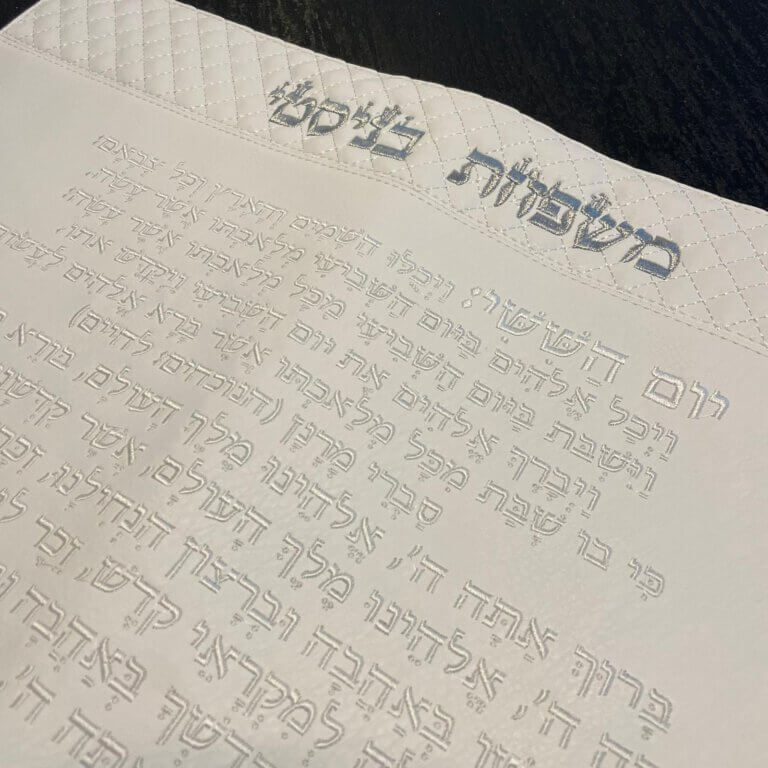 משפחת בניסטי
יוֹם הַשִּׁשִּׁי: וַיְכֻלּוּ הַשָּׁמַיִם וְהָאָרֶץ וְכָל צְבָאָם:
וַיְכַל אֱלֹהִים בַּיּוֹם הַשְּׁבִיעִי מְלַאכְתּוֹ אֲשֶׁר עָשָׂה,
וַיִּשְׁבֹּת בַּיּוֹם הַשְּׁבִיעִי מִכָּל מְלַאכְתּוֹ אֲשֶׁר עָשָׂה:
וַיְבָרֶךְ אֱלֹהִים אֶת יוֹם הַשְּׁבִיעִי וַיְקַדֵּשׁ אֹתוֹ,
כִּי בוֹ שָׁבַת מִכָּל מְלַאכְתּוֹ אֲשֶׁר בָּרָא אֱלֹהִים לַעֲשׂוֹת
סַבְרִי מָרָנָן (הנוכחים: לחיים)
בָּרוּךְ אַתָּה ה', אֱלֹהֵינוּ מֶלֶךְ הָעוֹלָם, בּוֹרֵא
ה', אֱלֹהֵינוּ מֶלֶךְ הָעוֹלָם, אֲשֶׁר
בְּאַהֲבָה וּבְרָצוֹן הִנְחִילָנוּ,
לְמִקְרָאֵי קֹדֶשׁ, זֵכֶר
בְּאַהֲבָה
אַתָּה ה',